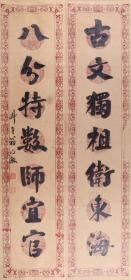 古文獨祖衛東海
八分特數師宜官